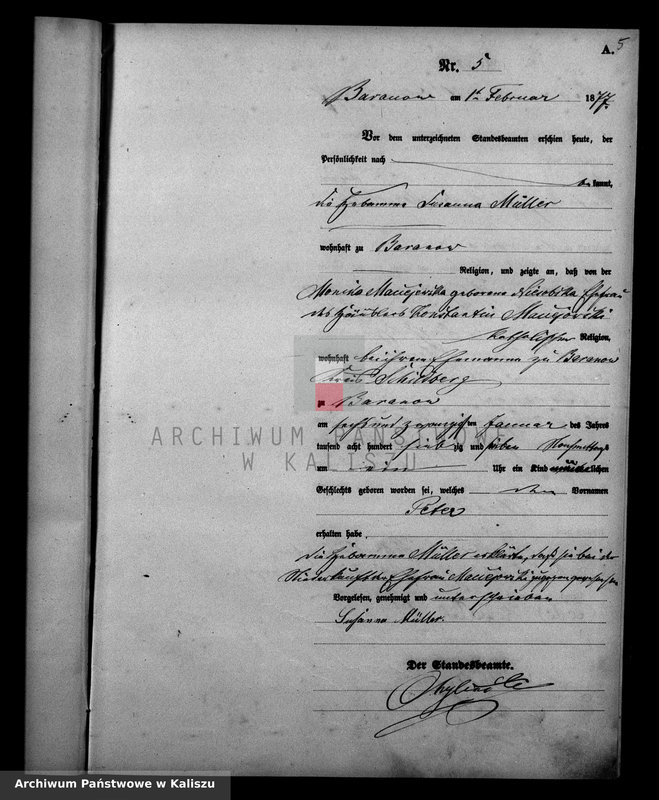 A. 5
Nr. 5
Baranow am 1ten Februar 1877
Vor dem unterzeichneten Standesbeamten erschien heute, der
Persönlichkeit nach
be kannt,
die Hebamme Susanna Müller
wohnhaft zu Baranow
Religion, und zeigte an, daß von der
Monika Maciejewska geborene Ehefrau
des Häuslers Konstantin Maciejewski
katholischer Religion,
wohnhaft bei ihrem Ehemanne zu Baranow
Kreis Schildberg
zu Baranow
am sechs und zwanzigsten Januar des Jahres
tausend acht hundert sieb zig und sieben
um Uhr ein Kind männlichen
Geschlechts geboren worden sei, welches den Vornamen
Peter
erhalten habe,
die Hebamme Müller erklärte, daß sie bei der
Niederkunft der Ehefrau Maciejewski zugegen gewesen
Vorgelesen, genehmigt und unterschrieben
Susanna Müller.
Der Standesbeamte.
ARCHIWUM PAŃSTWOWE
W KALISZU
Archiwum Państwowe w Kaliszu